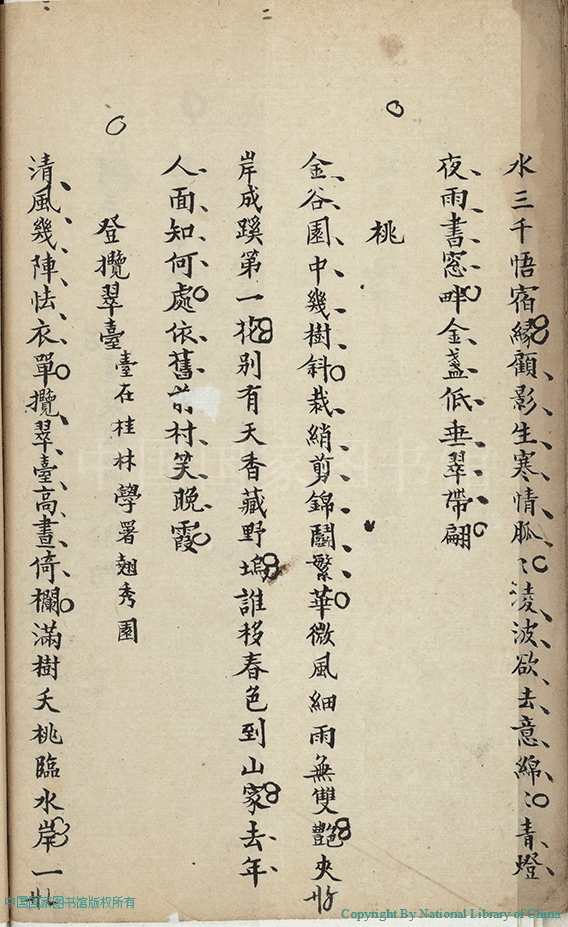 水三千悟宿緣顧影生寒情脈〻淩波欲去意綿〻青燈
夜雨書窓畔金盞低垂翠帶翩
桃
金谷園中幾樹斜裁綃剪錦鬬繁華微風細雨無雙艷夾
岸成蹊第一花别有天香藏野塢誰移春色到山家去年
人面知何處依舊前村笑晚霞
登攬翠臺臺在桂林學署翹秀園
清風幾陣怯衣單攬翠臺高晝倚欄滿樹夭桃臨水岸一
中国国家图书馆
中国国家图书馆版权所有
Copyright By National Library of China